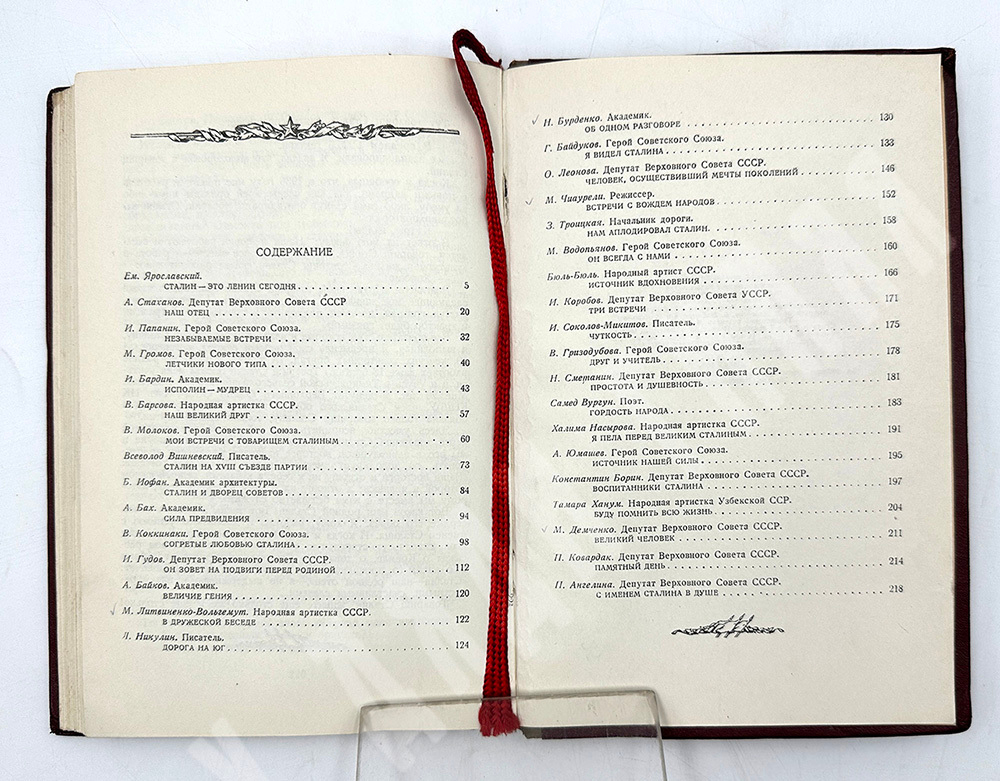 СОДЕРЖАНИЕ
Ем. Ярославский.
СТАЛИН — ЭТО ЛЕНИН СЕГОДНЯ . . . . . . . . . . . . . 5
А. Стаханов. Депутат Верховного Совета СССР
НАШ ОТЕЦ . . . . . . . . . . . . . 20
И. Папанин. Герой Советского Союза.
НЕЗАБЫВАЕМЫЕ ВСТРЕЧИ . . . . . . . . . . . . . 32
М. Громов. Герой Советского Союза.
ЛЕТЧИКИ НОВОГО ТИПА . . . . . . . . . . . . . 40
И. Бардин. Академик.
ИСПОЛИН — МУДРЕЦ . . . . . . . . . . . . . 43
В. Барсова. Народная артистка СССР.
НАШ ВЕЛИКИЙ ДРУГ . . . . . . . . . . . . . 57
В. Молоков. Герой Советского Союза.
МОИ ВСТРЕЧИ С ТОВАРИЩЕМ СТАЛИНЫМ . . . . . . . . . . . . . 60
Всеволод Вишневский. Писатель.
СТАЛИН НА XVIII СЪЕЗДЕ ПАРТИИ . . . . . . . . . . . . . 73
Б. Иофан. Академик архитектуры.
СТАЛИН И ДВОРЕЦ СОВЕТОВ . . . . . . . . . . . . . 84
А. Бах. Академик.
СИЛА ПРЕДВИДЕНИЯ . . . . . . . . . . . . . 94
В. Коккинаки. Герой Советского Союза.
СОГРЕТЫЕ ЛЮБОВЬЮ СТАЛИНА . . . . . . . . . . . . . 98
И. Гудов. Депутат Верховного Совета СССР.
ОН ЗОВЕТ НА ПОДВИГИ ПЕРЕД РОДИНОЙ . . . . . . . . . . . . . 112
А. Байков. Академик.
ВЕЛИЧИЕ ГЕНИЯ . . . . . . . . . . . . . 120
М. Литвиненко-Вольгемут. Народная артистка СССР.
В ДРУЖЕСКОЙ БЕСЕДЕ . . . . . . . . . . . . . 122
Л. Никулин. Писатель.
ДОРОГА НА ЮГ . . . . . . . . . . . . . 124
Н. Бурденко. Академик.
ОБ ОДНОМ РАЗГОВОРЕ . . . . . . . . . . . . . 130
Г. Байдуков. Герой Советского Союза.
Я ВИДЕЛ СТАЛИНА . . . . . . . . . . . . . 133
О. Леонова. Депутат Верховного Совета СССР.
ЧЕЛОВЕК, ОСУЩЕСТВИВШИЙ МЕЧТЫ ПОКОЛЕНИЙ . . . . . . . . . . . . . 146
М. Чиаурели. Режиссер.
ВСТРЕЧИ С ВОЖДЕМ НАРОДОВ . . . . . . . . . . . . . 152
З. Троицкая. Начальник дороги.
НАМ АПЛОДИРОВАЛ СТАЛИН. . . . . . . . . . . . . 158
М. Водопьянов. Герой Советского Союза.
ОН ВСЕГДА С НАМИ . . . . . . . . . . . . . 160
Бюль-Бюль. Народный артист СССР.
ИСТОЧНИК ВДОХНОВЕНИЯ . . . . . . . . . . . . . 166
И. Коробов. Депутат Верховного Совета УССР.
ТРИ ВСТРЕЧИ . . . . . . . . . . . . . 171
И. Соколов-Микитов. Писатель.
ЧУТКОСТЬ . . . . . . . . . . . . . 175
В. Гризодубова. Герой Советского Союза.
ДРУГ И УЧИТЕЛЬ . . . . . . . . . . . . . 178
Н. Сметанин. Депутат Верховного Совета СССР.
ПРОСТОТА И ДУШЕВНОСТЬ . . . . . . . . . . . . . 181
Самед Вургун. Поэт.
ГОРДОСТЬ НАРОДА . . . . . . . . . . . . . 183
Халима Насырова. Народная артистка СССР.
Я ПЕЛА ПЕРЕД ВЕЛИКИМ СТАЛИНЫМ . . . . . . . . . . . . . 191
А. Юмашев. Герой Советского Союза.
ИСТОЧНИК НАШЕЙ СИЛЫ . . . . . . . . . . . . . 195
Константин Борин. Депутат Верховного Совета СССР.
ВОСПИТАННИКИ СТАЛИНА . . . . . . . . . . . . . 197
Тамара Ханум. Народная артистка Узбекской ССР.
БУДУ ПОМНИТЬ ВСЮ ЖИЗНЬ . . . . . . . . . . . . . 204
М. Демченко. Депутат Верховного Совета СССР.
ВЕЛИКИЙ ЧЕЛОВЕК . . . . . . . . . . . . . 211
П. Ковардак. Депутат Верховного Совета СССР.
ПАМЯТНЫЙ ДЕНЬ . . . . . . . . . . . . . 214
П. Ангелина. Депутат Верховного Совета СССР.
С ИМЕНЕМ СТАЛИНА В ДУШЕ . . . . . . . . . . . . . 218